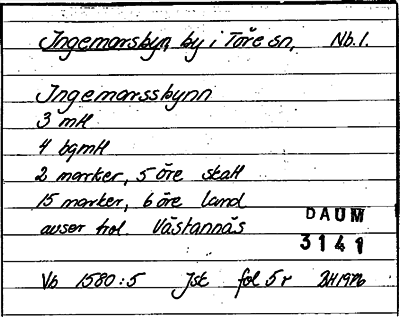 Ingemarsbyn by i Töre sn, Nb.l.
Ingemarssbynn
3 mtl
4 bgmtl
2 marker, 5 öre skatt
15 marker, 6 öre land
avser trol. Västannäs
DAUM
3141
Vb 1580:5 Jsk fol 5r BH1976